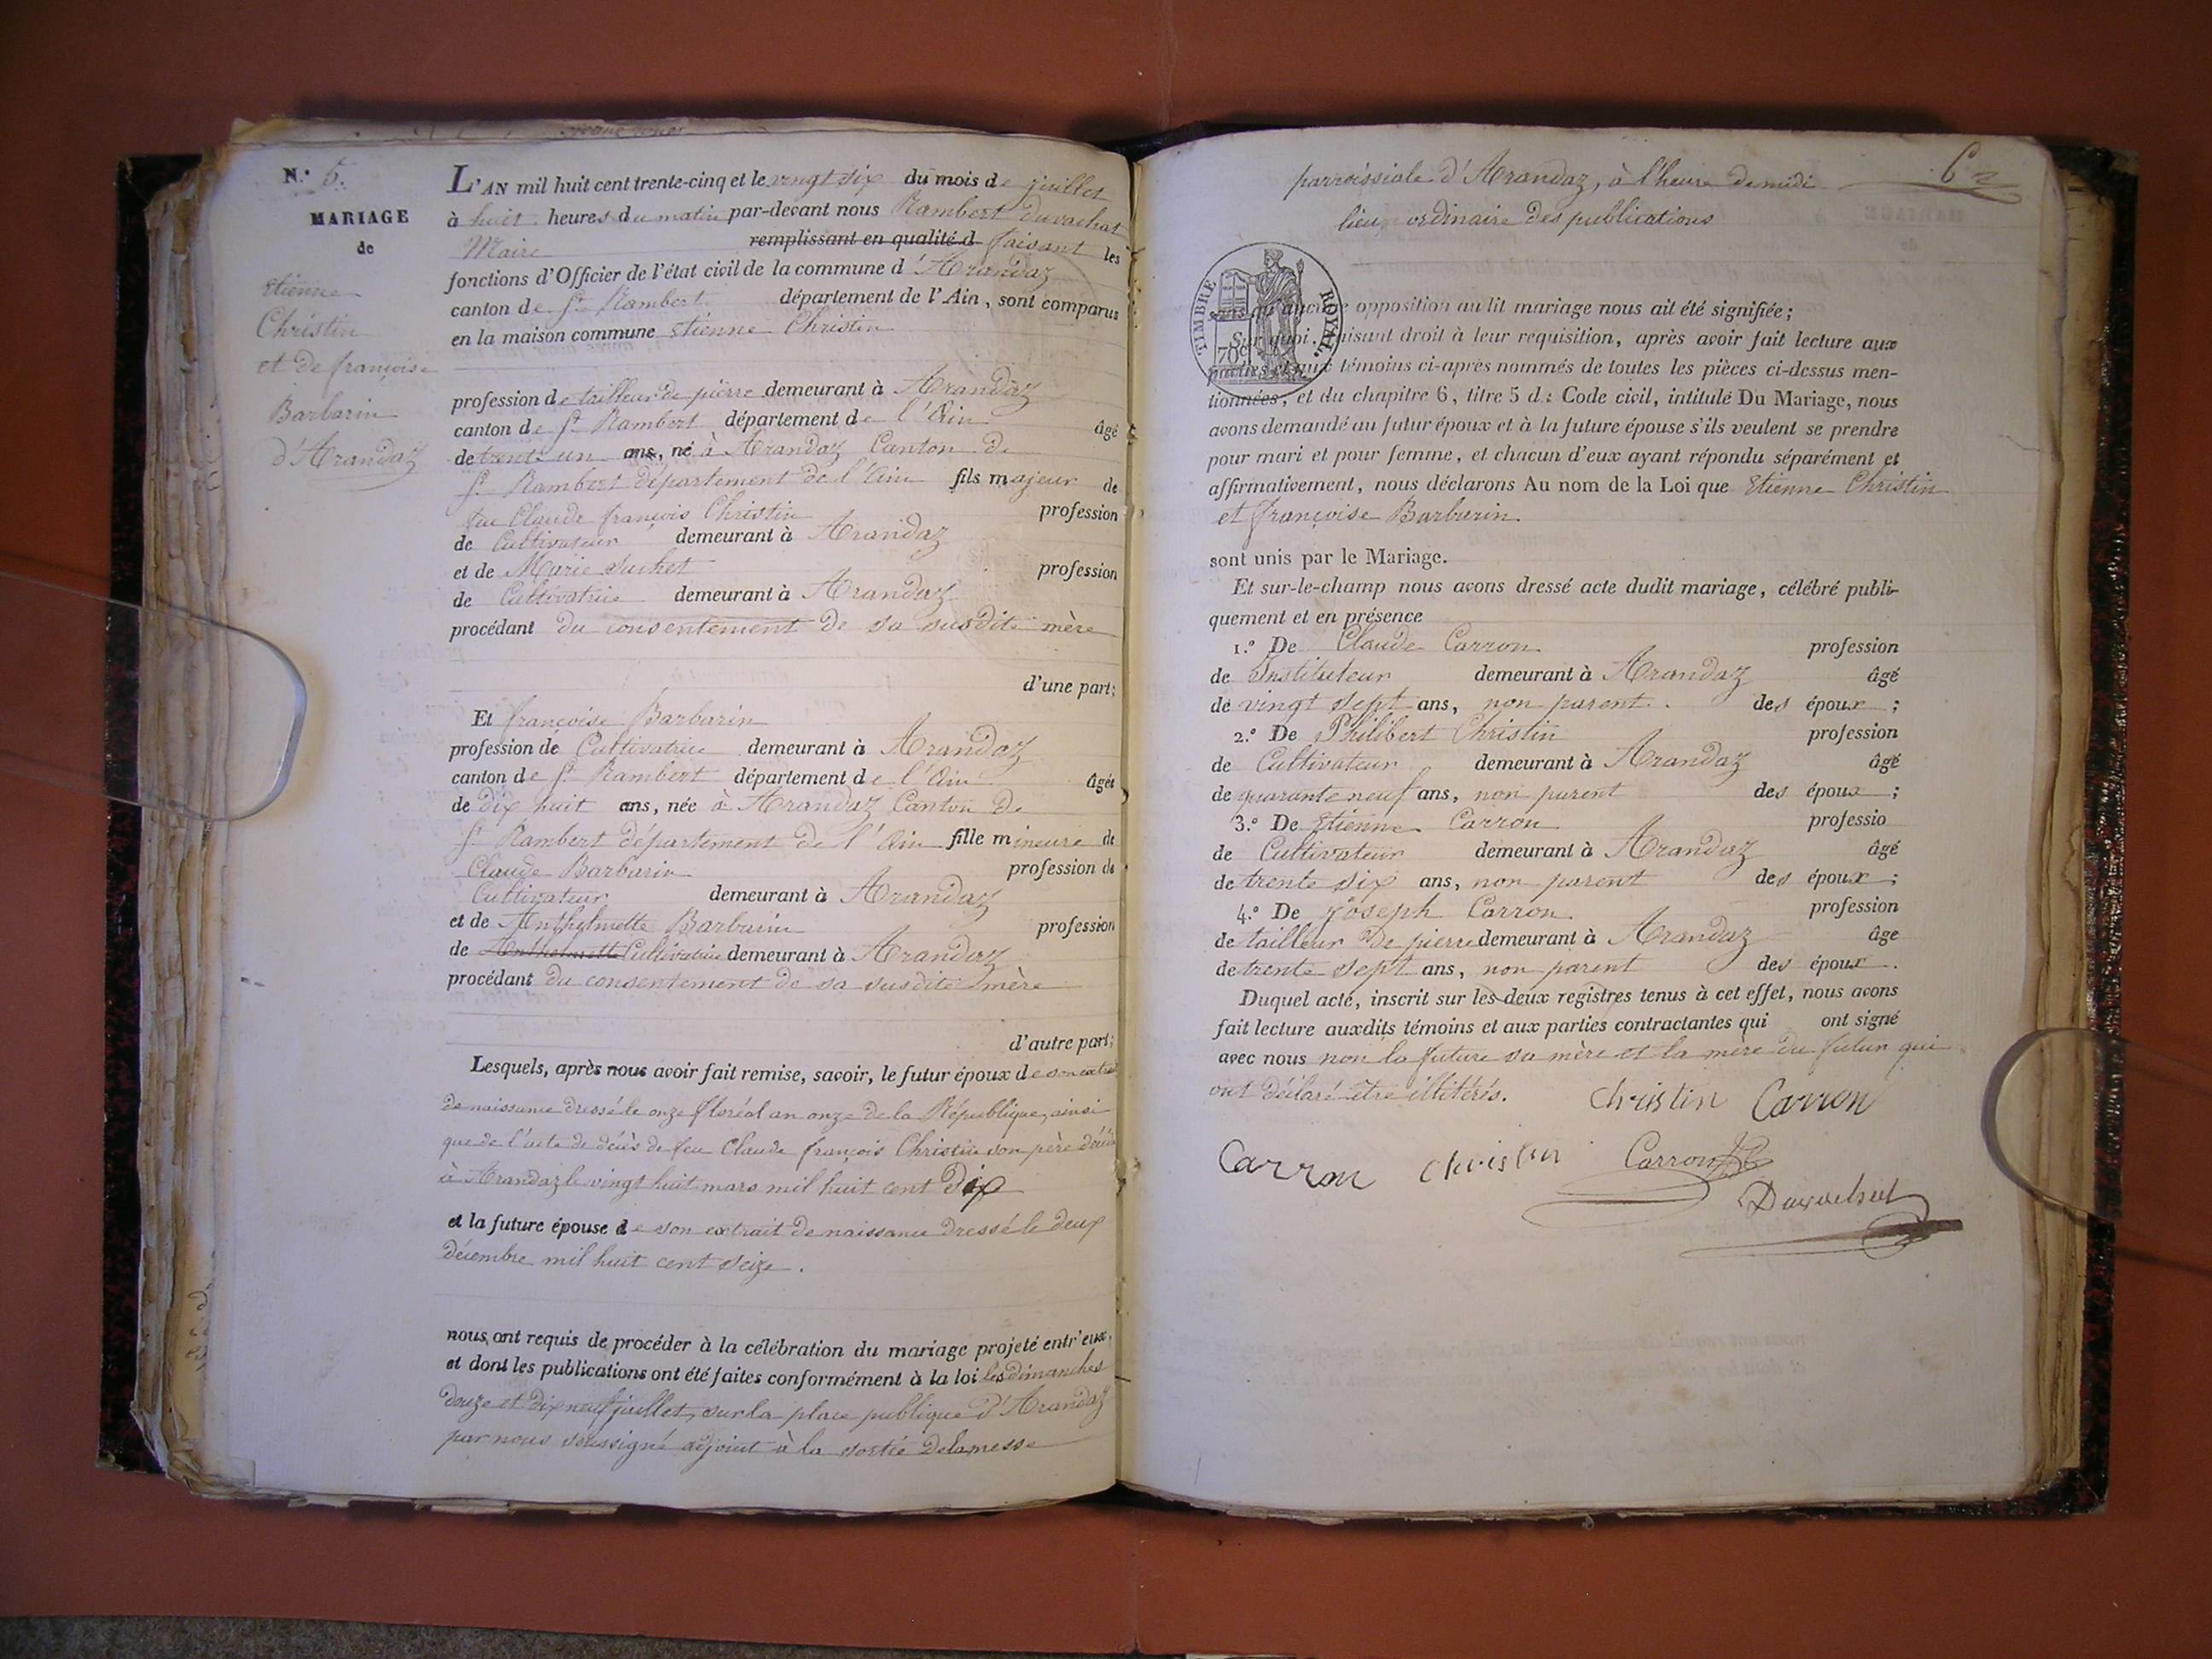 N.º 5.
MARIAGE
de
Etienne
Christin
et de françoise
Barbarin
d'Arandaz
L'AN mil huit cent trente-cinq et le vingt six du mois de juillet
à huit heures du matin par-devant nous Rambert Duvachat
Maire remplissant en qualité d faisant les
fonctions d'Officier de l'état civil de la commune d'Arandaz
canton de St Rambert département de l'Ain, sont comparus
en la maison commune Etienne Christin
profession de tailleur de pierre demeurant à Arandaz
canton de St Rambert département de l'Ain âgé
de trente un ans, né à Arandaz Canton de
St Rambert département de l'Ain fils majeur de
feu Claude françois Christin profession
de Cultivateur demeurant à Arandaz
et de Marie Suchet profession
de Cultivatrice demeurant à Arandaz
procédant du consentement de sa susdite mère
d'une part;
Et françoise Barbarin
profession de Cultivatrice demeurant à Arandaz
canton de St Rambert département de l'Ain âgée
de dix huit ans, née à Arandaz Canton de
St Rambert département de l'Ain fille mineure de
Claude Barbarin profession de
Cultivateur demeurant à Arandaz
et de Anthelmette Barbarin profession
de Anthelmette Cultivatrice demeurant à Arandaz
procédant du consentement de sa susdite mère
d'autre part;
Lesquels, après nous avoir fait remise, savoir, le futur époux de son extrait
de naissance dressé le onze floréal an onze de la République, ainsi
que de l'acte de décès de feu Claude françois Christin son père décédé
à Arandaz le vingt huit mars mil huit cent Dix
et la future épouse de son extrait de naissance dressé le deux
décembre mil huit cent seize.
nous ont requis de procéder à la célébration du mariage projeté entr'eux,
et dont les publications ont été faites conformément à la loi les dimanches
douze et dix neuf juillet, sur la place publique d'Arandaz
par nous soussigné adjoint à la sortie de la messe
6
parroissiale d'Arandaz, à l'heure de midi
lieu ordinaire des publications
TIMBRE ROYAL.
70c
sans qu'aucune opposition audit mariage nous ait été signifiée;
Sur quoi, faisant droit à leur requisition, après avoir fait lecture aux
parties et aux témoins ci-après nommés de toutes les pièces ci-dessus men-
tionnées, et du chapitre 6, titre 5 du Code civil, intitulé Du Mariage, nous
avons demandé au futur époux et à la future épouse s'ils veulent se prendre
pour mari et pour femme, et chacun d'eux ayant répondu séparément et
affirmativement, nous déclarons Au nom de la Loi que Etienne Christin
et françoise Barbarin
sont unis par le Mariage.
Et sur-le-champ nous avons dressé acte dudit mariage, célébré publi-
quement et en présence
1.º De Claude Carron profession
de Instituteur demeurant à Arandaz âgé
de vingt sept ans, non parent des époux;
2.º De Philibert Christin profession
de Cultivateur demeurant à Arandaz âgé
de quarante neuf ans, non parent des époux;
3.º De Etienne Carron professio
de Cultivateur demeurant à Arandaz âgé
de trente six ans, non parent des époux;
4.º De Joseph Carron profession
de tailleur de pierre demeurant à Arandaz âgé
de trente sept ans, non parent des époux.
Duquel acte, inscrit sur les deux registres tenus à cet effet, nous avons
fait lecture auxdits témoins et aux parties contractantes qui ont signé
avec nous non la future sa mère et la mère du futur qui
ont déclaré être illitérés. Christin Carron
Carron Christin Carron
Duvachat